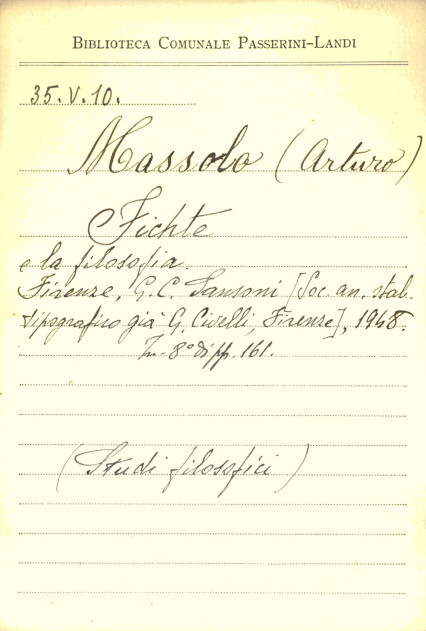 BIBLIOTECA COMUNALE PASSERINI-LANDI
35.V.10.
Massolo (Arturo)
Fichte
e la filosofia.
Firenze, G. C. Sansoni [Soc. an. stab.
tipografico già G. Civelli, Firenze], 1948.
In-8° di pp. 161.
(Studi filosofici)